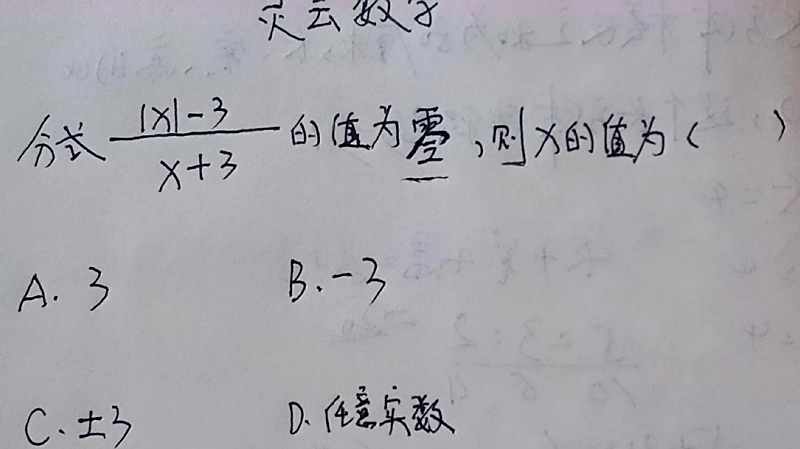 灵云数学
分式 (|x|-3)/(x+3) 的值为零,则x的值为( )
A. 3 B. -3
C. ±3 D. 任意实数